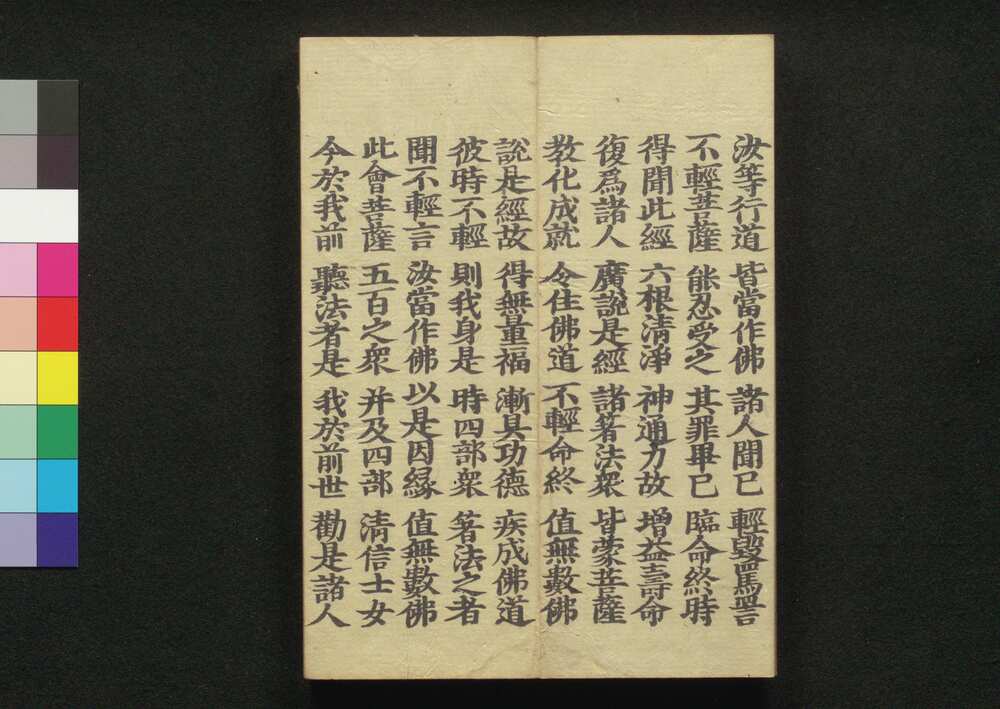 汝等行道 皆當作佛 諸人聞已 輕毀罵詈
不輕菩薩 能忍受之 其罪畢已 臨命終時
得聞此經 六根清淨 神通力故 增益壽命
復爲諸人 廣說是經 諸著法衆 皆蒙菩薩
教化成就 令住佛道 不輕命終 値無數佛
說是經故 得無量福 漸具功德 疾成佛道
彼時不輕 則我身是 時四部衆 著法之者
聞不輕言 汝當作佛 以是因緣 値無數佛
此會菩薩 五百之衆 并及四部 清信士女
今於我前 聽法者是 我於前世 勸是諸人